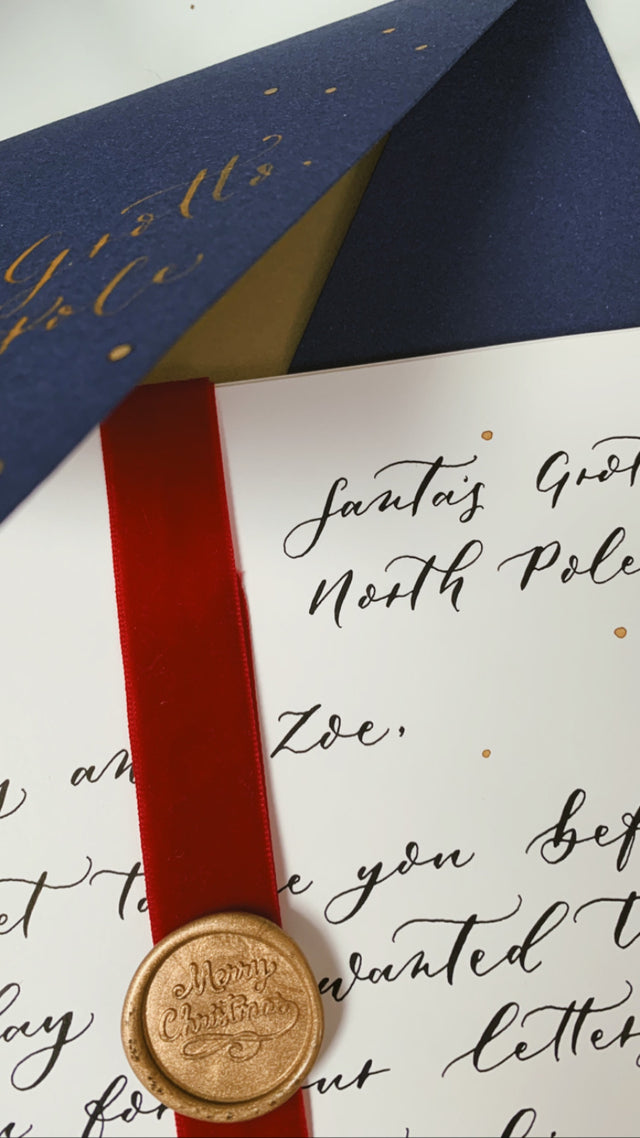 Grotto.
Pole
Santa's Grot
North Pole
y an Zoe,
et to e you bef
wanted t
lay
n for ur letter
Merry
Christmas